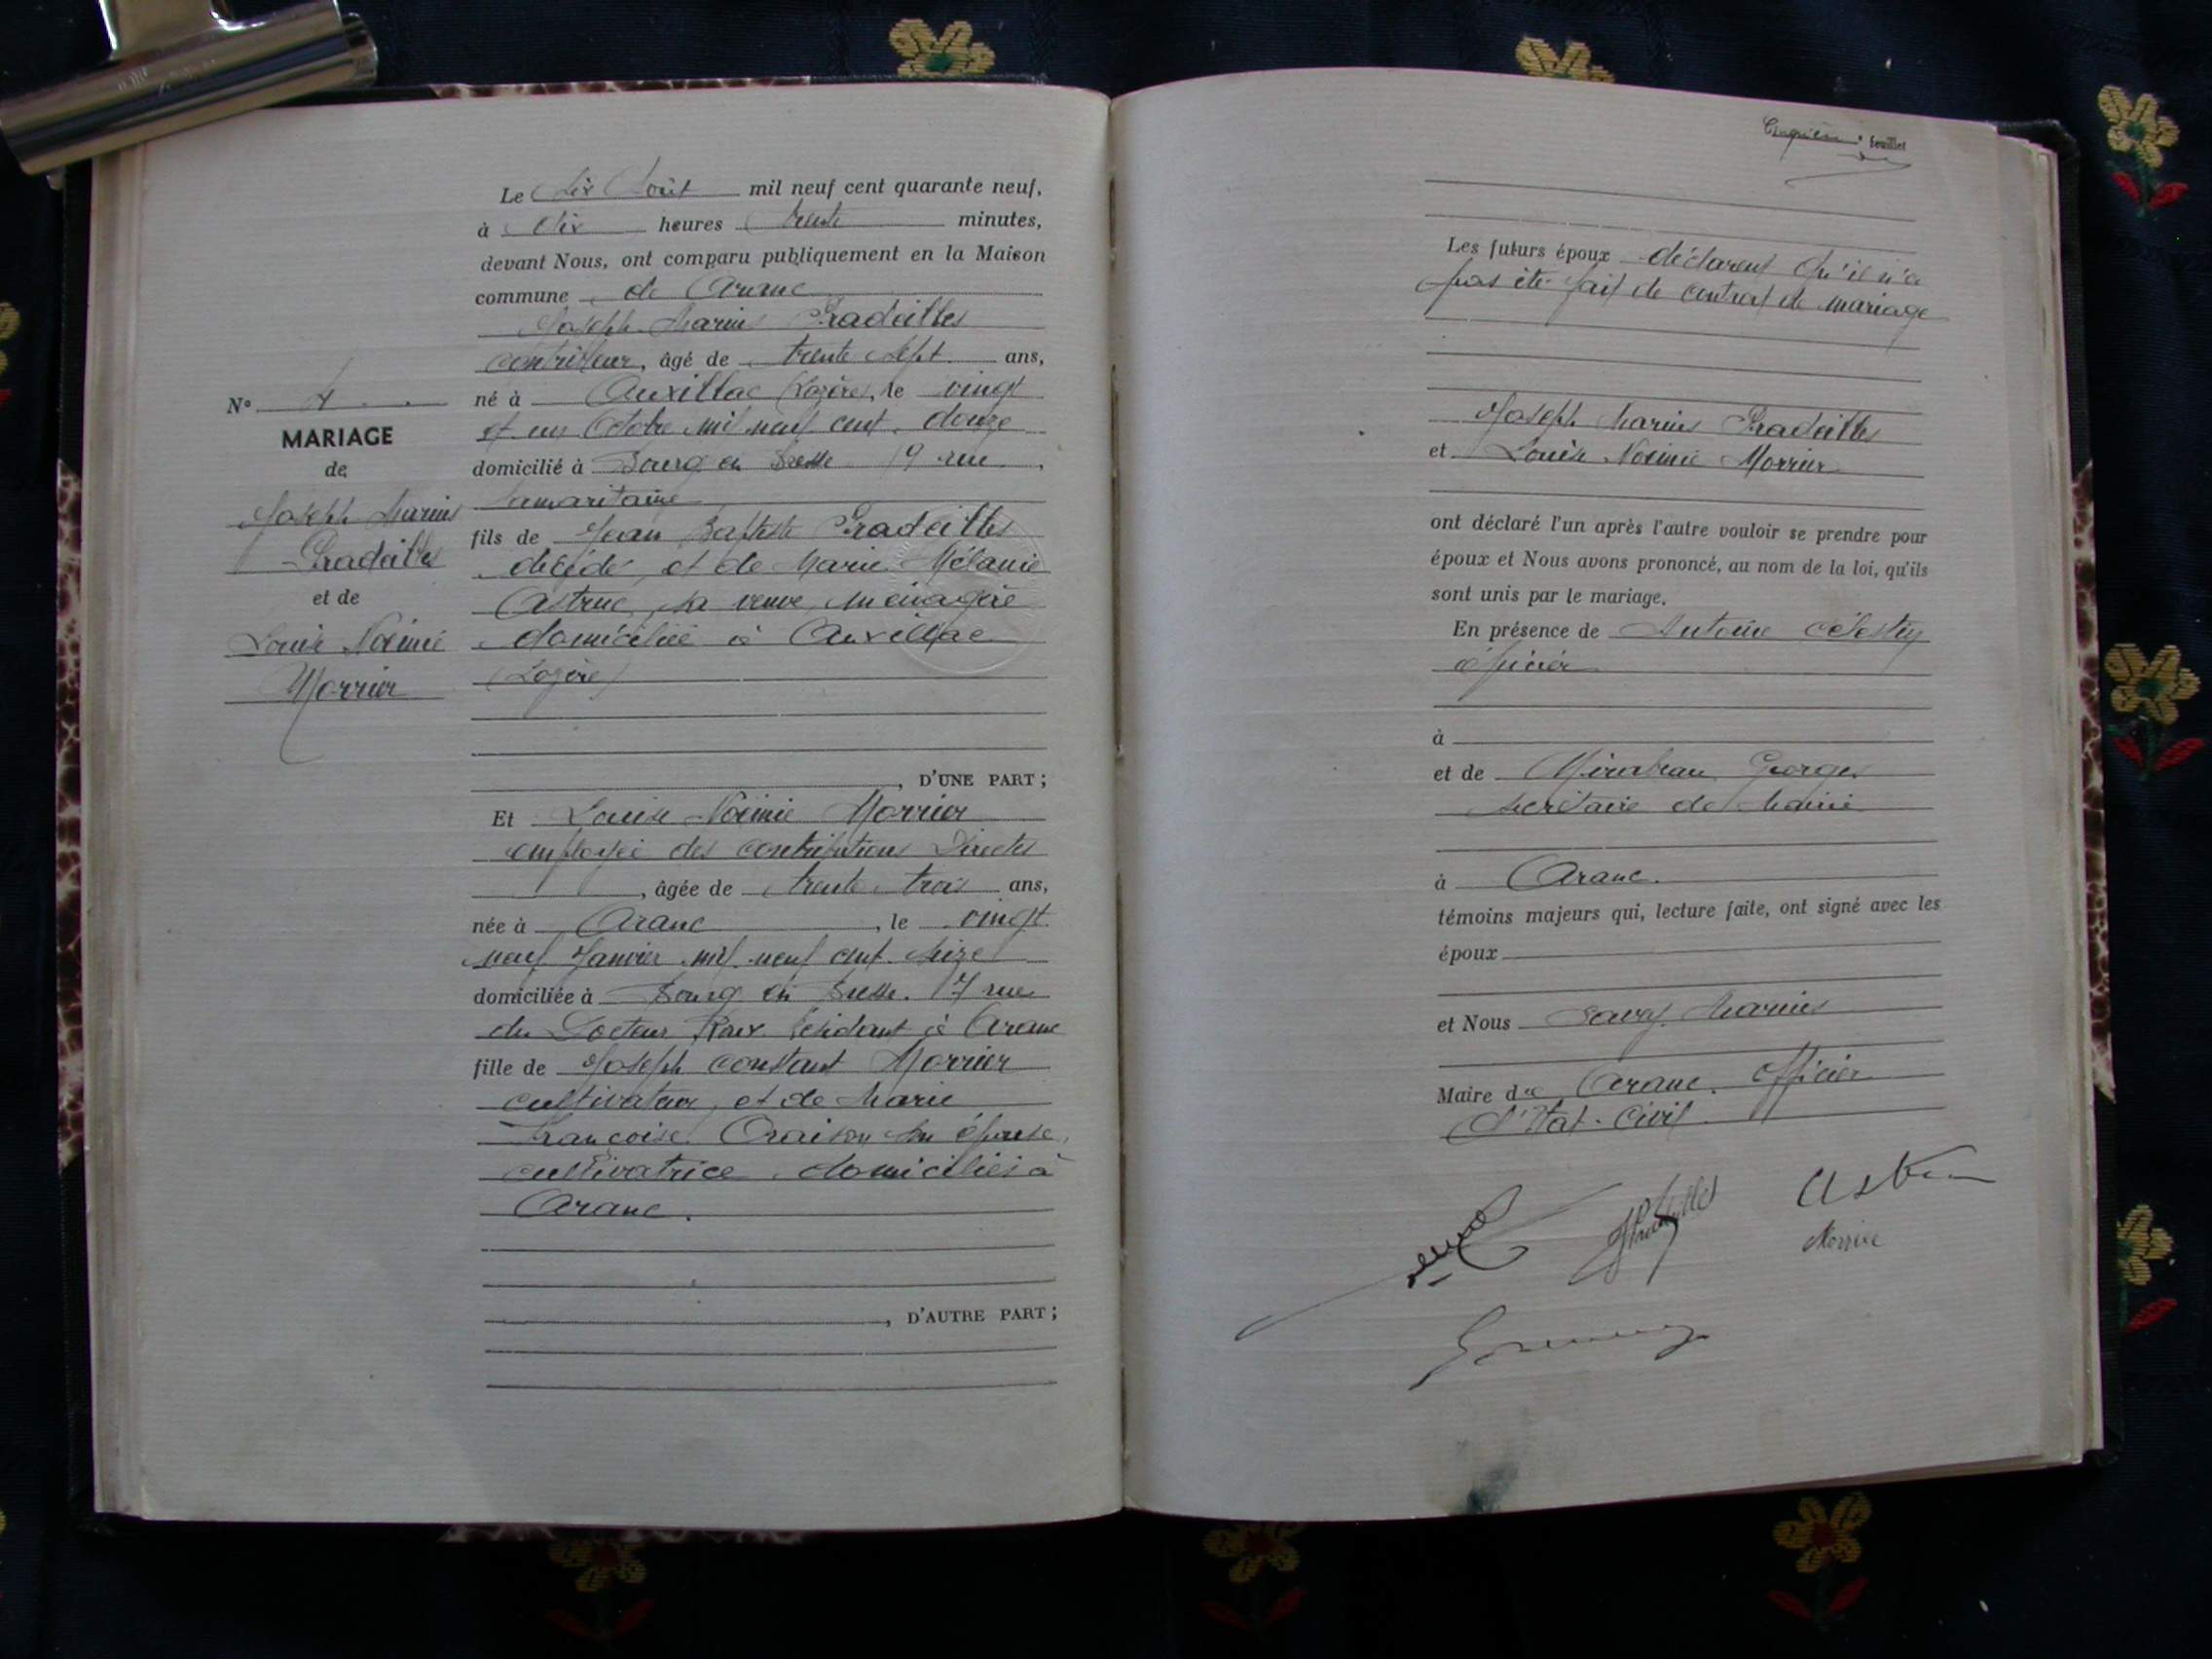 Le Six Août mil neuf cent quarante neuf,
à dix heures trente minutes,
devant Nous, ont comparu publiquement en la Maison
commune de Aranc
Joseph Marius Pradeilles
contrôleur, âgé de trente sept ans,
né à Auxillac (Lozère), le vingt
et un Octobre mil neuf cent douze
domicilié à Bourg en Bresse 19 rue
Samaritaine
fils de Jean Baptiste Pradeilles
décédé, et de Marie Mélanie
Astruc, sa veuve, ménagère
domiciliée à Auxillac
(Lozère)
, D'UNE PART ;
N°
MARIAGE
de
Joseph Marius
Pradeilles
et de
Louise Noémie
Morrier
Et Louise Noémie Morrier
employée des contributions Directes
, âgée de trente trois ans,
née à Aranc, le vingt
neuf Janvier mil neuf cent seize
domiciliée à Bourg en Bresse. 17 rue
du Docteur Roux résidant à Aranc
fille de Joseph constant Morrier
cultivateur, et de Marie
Françoise Oraison son épouse,
cultivatrice, domiciliés à
Aranc.
, D'AUTRE PART ;
Cinquième feuillet
Les futurs époux déclarent qu'il n'a
pas été fait de contrat de mariage
Joseph Marius Pradeilles
et Louise Noémie Morrier
ont déclaré l'un après l'autre vouloir se prendre pour
époux et Nous avons prononcé, au nom de la loi, qu'ils
sont unis par le mariage.
En présence de Antoine Célestin
épicier
à
et de Mirabeau Georges
secrétaire de Mairie
à Aranc.
témoins majeurs qui, lecture faite, ont signé avec les
époux
et Nous Savey Marius
Maire de Aranc. Officier
d'Etat-Civil.
Morrier